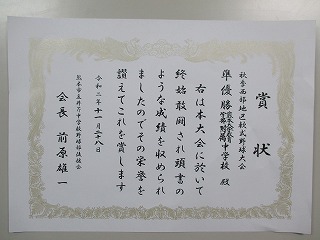 賞状
秋季西部地区軟式野球大会
準優勝
中学校 殿
右は本大会に於いて
終始敢闘され頭書の
ような成績を収められ
ましたのでその栄誉を
讃えてこれを賞します
令和二年十一月二十八日
会長 前原雄一